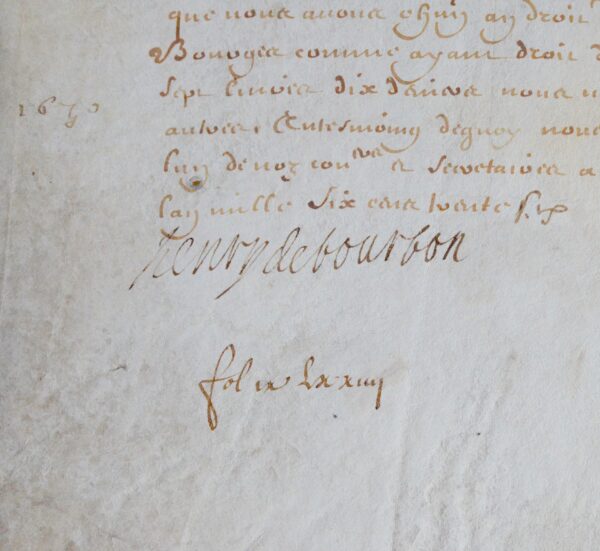 que nous avons chun an droit
Bourges comme ayant droit d
sept livres dix deniers nous
autres. En tesmoing dequoy nous
l'un de noz con^ers & secretaires a
l'an mille six cens trente six
1636
henry de bourbon
fol ix^xx xiiij